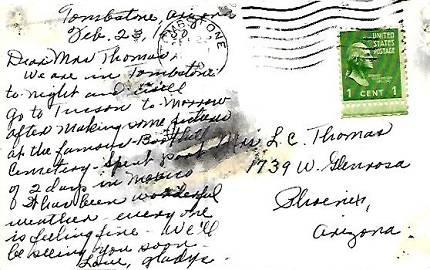 Tombstone, Arizona
Feb. 23, 
Dear Mrs Thomas,
We are in Tombstone
to night and will
go to Tucson to Morrow
after making some pictures
at the famous Boothill
Cemetery - Spent part
of 2 days in Mexico
It has been wonderful
weather - every one
is feeling fine - We'll
be seeing you soon -
Love, Gladys.
TOMBSTONE
UNITED
STATES
POSTAGE
1 CENT 1
Mrs L. C. Thomas
1739 W. Glenrosa
Phoenix,
Arizona.